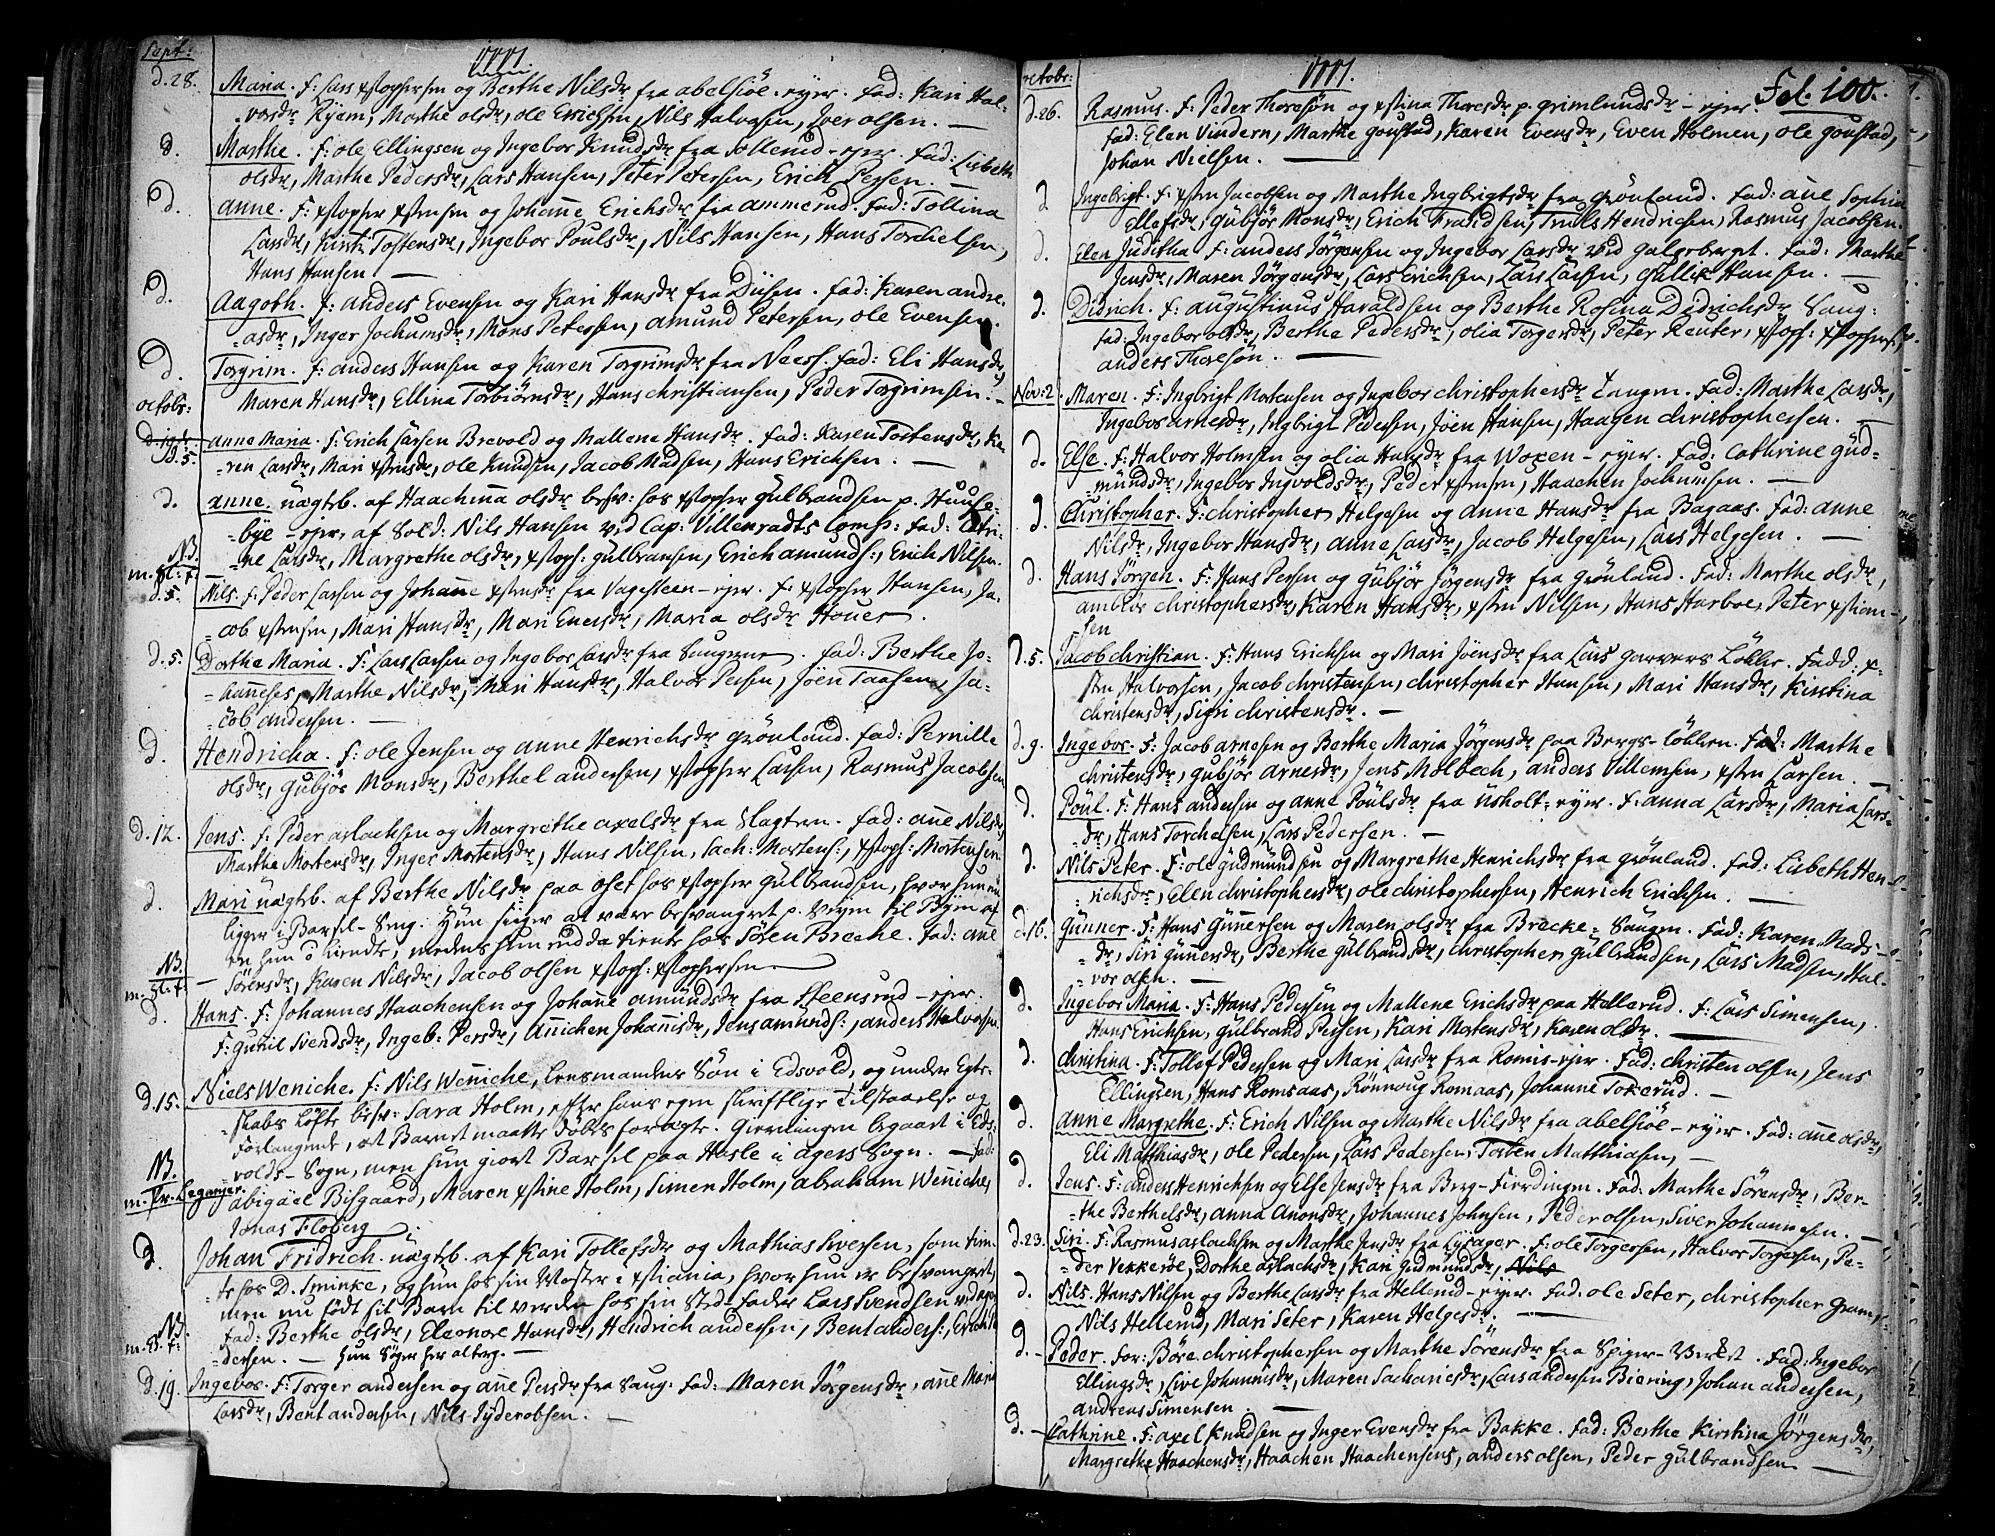 Sept:
1777.
d. 28. Maria. F: Lars xstophersen og Berthe Nilsdr fra Abelsiöe-eyer. Fad: Kari Hal-
vorsdr Ryem, Marthe olsdr, ole Erichsen, Nils Halvorsen, Iver olsen. —
d. Marthe. F: ole Ellingsen og Ingebor Knudsdr fra Sollerud-eyer. Fad: Lisbeth
olsdr, Marthe Pedersdr, Lars Hansen, Peter Petersen, Erich Persen. —
d. Anne. F: xstopher xstensen og Johanne Erichsdr fra Ammerud. Fad: Tollina
Larsdr, Tostensdr, Ingebor Poulsdr, Nils Hansen, Hans Torchelsen,
Hans Hansen —
d. Aagoth. F: Anders Evensen og Kari Hansdr fra Disen. Fad: Karen Andre-
asdr, Inger Jochumsdr, Mons Petersen, Amund Petersen, ole Evensen.
d. Torgrim. F: Anders Hansen og Karen Torgrimsdr fra Fad: Eli Hansdr,
Maren Hansdr, Ellina Torbiörnsdr, Hans christiansen, Peder Torgrimsen. —
octobr:
d. 5. Anne Maria. F: Erich Larsen Brevold og Mallene Hansdr. Fad: Karen Tostensdr, Ka-
ren Larsdr, Mari xstensdr, ole Knudsen, Jacob Madsen, Hans Erichsen. —
d. Anne. uægtb. af Haachina olsdr besv: hos xstopher Gulbrandsen p. Huuse-
bye-eyer, af Sold: Nils Hansen v.d Cap: Villenradts Comp: Fad: Catri-
ne Larsdr, Margrethe olsdr, xstoph: Gulbransen, Erich Amunds:, Erich Nilsen.
NB.
d. 5. Nils. F: Peder Larsen og Johanne xstensdr fra Vagesteen-eyer. F: xstopher Hansen, Ja-
cob xstensen, Mari Hansdr, Mari Enersdr, Maria olsdr Houer.
d. 5. Dorthe Maria. F: Lars Larsen og Ingebor Larsdr fra Saugene. Fad: Berthe Jo-
hanneses, Marthe Nilsdr, Mari Hansdr, Halvor Persen, Jöen Taasen, Ja-
cob Andersen. —
d. Hendricha. F: ole Jensen og Anne Henrichsdr Grönland. Fad: Pernille
olsdr, Gubjör Monsdr, Berthel Andersen, xstopher Larsen, Rasmus Jacobsen.
d. 12. Jens. F: Peder Aslachsen og Margrethe Axelsdr fra Slagtern. Fad: Ane Nilsdr,
Marthe Mortensdr, Inger Mortensdr, Hans Nilsen, Sach: Mortens:, xstoph: Mortensen.
d. Mari uægtb. af Berthe Nilsdr paa oset hos xstopher Gulbrandsen, hvor hun nu
ligger i Barsel-Seng. Hun siger at være besvangret p. Veyen til Byen af
en hun ei kiendte, medens hun endda tiente hos Sören Breche. Fad: Ane
NB.
Sörensdr, Karen Nilsdr, Jacob olsen xstoph: xstophersen.
d. Hans. F: Johannes Haachensen og Johane Amundsdr fra Steensrud-eyer.
F: Guril Svendsdr, Ingeb: Persdr, Anichen Johannisdr, Jens Amunds:, Anders Halvorsen.
d. 15. Niels Weniche. F: Nils Weniche, Lensmandens Sön i Edsvold, og under Egte-
skabs Löfte besv: Sara Holm, efter hans egen skriftlige Tilstaaelse og
Forlangende, at Barnet maatte Döbes for ægte. Gierningen begaaet i Eds-
volds-Sogn, men hun giort Barsel paa Hasle i Agers Sogn. — Fad:
NB.
m. Pr. Leganger.
Abigael Bisgaard, Maren xstine Holm, Simen Holm, Abraham Weniche,
Jonas Floberg
d. Johan Fridrich. uægtb. af Kari Tollefsdr og Mathias Iversen, som tien-
te hos D. Sminke, og hun hos sin Moster i xstiania, hvor hun er besvangret,
men nu födt sit Barn til verden hos sin Sted-Fader Lars Svendsen
NB.
Fad: Berthe olsdr, Eleonore Hansdr, Hendrich Andersen, Bent Anders:,
dersen. — hun Söger her alterg. —
d. 19. Ingebor. F: Torger Andersen og Ane Persdr fra Saug: Fad: Maren Jörgensdr, Ane Maria
Larsdr, Bent Andersen, Nils —
octobr:
1777.
Fol. 100.
d. 26. Rasmus. F: Peder Thoresön og xstina Thoresdr p. Grimlunds — eyer.
Fad: Elen Vindern, Marthe Goustad, Karen Evensdr, Even Holmen, ole Goustad,
Johan Nielsen. —
d. Ingebrigt. F: xsten Jacobsen og Marthe Ingbrigtsdr fra Grönland. Fad: Ane Sophia
Ellefsdr, Gubjör Monsdr, Erich Frandsen, Truls Hendrichsen, Rasmus Jacobsen.
d. Elen Juditha F: Anders Jörgensen og Ingebor Larsdr ved Galgeberget. Fad: Marthe
Jensdr, Maren Jörgensdr, Lars Erichsen, Lars Larsen, Gullik Hansen. —
d. Didrich. F: Augustinus Haraldsen og Berthe Rosina Didrichsdr Saug:
Fad: Ingebor olsdr, Berthe Pedersdr, olia Torgersdr, Peter Reuter, xstoph: xstophersen,
Anders Thoresön. —
Nov: 2. Maren. F: Ingbrigt Mortensen og Ingebor christophersdr Fad: Marthe Larsdr,
Ingebor Arnesdr, Ingbrigt Pedersen, Jöen Hansen, Haagen christophersen. —
d. Else. F: Halvor Holmsen og olia Hansdr fra Woxen-eyer. Fad: Cathrine Gud-
mundsdr, Ingebor Ingvoldsdr, Peder xstensen, Haachen Jochumsen. —
d. Christopher. F: christopher Helgesen og Anne Hansdr fra Bagaas. Fad: Anne
Nilsdr, Ingebor Hansdr, Anne Larsdr, Jacob Helgesen, Lars Helgesen. —
d. Hans Jörgen. F: Hans Persen og Gubjör Jörgensdr fra Grönland. Fad: Marthe olsdr,
Amblor christophersdr, Karen Hansdr, xsten Nilsen, Hans Harboe, Peter xstian-
sen
d. 5. Jacob christian. F: Hans Erichsen og Mari Jöensdr fra Lars Garvers Lökke. Fadd: x-
sten Halvorsen, Jacob christensen, christopher Hansen, Mari Hansdr, Kirstina
christensdr, Sigri christensdr. —
d. 9. Ingebor. F: Jacob Arnesen og Berthe Maria Jörgensdr paa Bergs-Lökken. Fad: Marthe
christensdr, Gubjör Arnesdr, Jens Molbech, Anders Villemsen, xsten Larsen. —
d. Poul. F: Hans Andersen og Anne Poulsdr fra Usholt-eyer. F: Anna Larsdr, Maria Lars-
dr, Hans Torchelsen, Lars Pedersen. —
d. Nils Peter. F: ole Gudmundsen og Margrethe Henrichsdr fra Grönland. Fad: Lisbeth Hen-
richsdr, Ellen christophersdr, ole christophersen, Henrich Erichsen. —
d. 16. Gunner. F: Hans Gunnersen og Maren olsdr fra Brecke-Saugen. Fad: Karen Mads-
dr, Siri Gunersdr, Berthe Gulbrandsdr, christopher Gulbrandsen, Lars Madsen, Hal-
vor olsen. —
d. Ingebor Maria. F: Hans Pedersen og Mallene Erichsdr paa Hellerud. F: Lars Simensen,
Hans Erichsen, Gulbrand Persen, Kari Mortensdr, Karen olsdr. —
d. christina. F: Tollef Pedersen og Mari Larsdr fra Romis-eyer. Fad: christen olsen, Jens
Ellingsen, Hans Romsaas, Rönnoug Romsaas, Johanne Tokerud. —
d. Anne Margrethe. F: Erich Nilsen og Marthe Nilsdr fra Abelsiöe-eyer. Fad: Ane olsdr,
Eli Matthiasdr, ole Pedersen, Lars Pedersen, Torben Matthiasen, —
d. Jens. F: Anders Henrichsen og Else Jensdr fra Berg-Fierdingen. Fad: Marthe Sörensdr, Ber-
the Berthelsdr, Anna Anonsdr, Johannes Johnsen, Peder olsen, Siver Johannesen. —
d. 23. Siri. F: Rasmus Aslachsen og Marthe Jensdr fra Lysager. F: ole Torgersen, Halvor Torgersen, Pe-
der Vekkeröe, Dorthe Aslachsdr, Kari Gudmundsdr, Nils
d. Nils. Hans Nilsen og Berthe Larsdr fra Hellerud-eyer. Fad: ole Seter, christopher
Nils Hellerud, Mari Seter, Karen Helgesdr. —
d. — Peder. For: Böre christophersen og Marthe Sörensdr fra Spiger-Verket. Fad: Ingebor
Ellingsdr, Live Johannisdr, Maren Sachariesdr, Lars Andersen Biering, Johan Andersen,
Andreas Simensen. —
d. — Cathrine. F: Axel Knudsen og Inger Evensdr fra Bakke. Fad: Berthe Kirstina Jörgensdr,
Margrethe Haachensdr, Haachen Haachensens, Anders olsen, Peder Gulbrandsen —